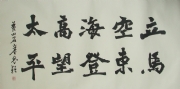 立馬
空東
海登
高望
太平